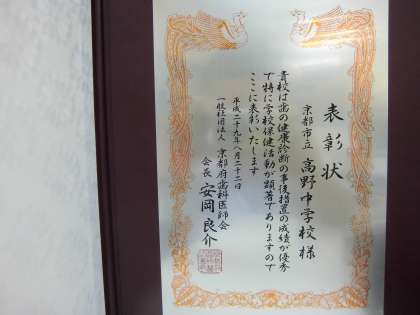 表彰状
京都市立 高野中学校様
貴校は歯の健康診断の事後措置の成績が優秀
で特に学校保健活動が顕著でありますので
ここに表彰いたします
平成二十九年八月二十二日
一般社団法人 京都府歯科医師会
会長 安岡良介